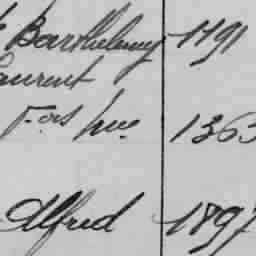 Barthelemy 1191
Laurent
Fois hue 1363
Alfred 1897